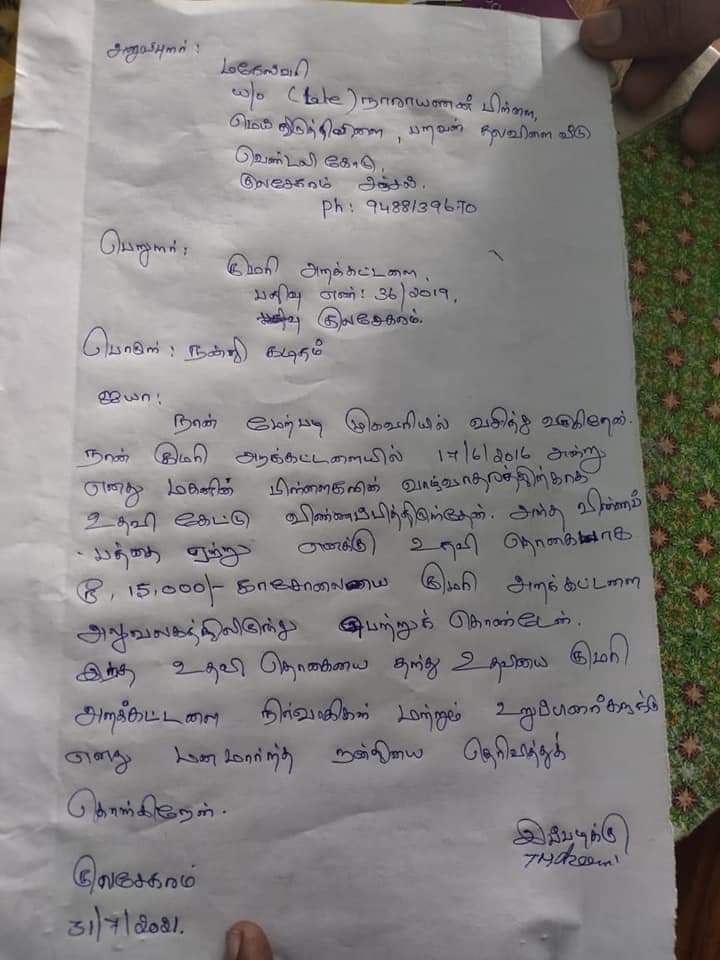 அனுப்புனர் :
மகேஸ்வரி
W/o (Late) நாராயணன் பிள்ளை,
பறவன் தலவிளை வீடு
வெண்டலி கோடு,
குலசேகரம் அஞ்சல்.
Ph : 9488139670
பெறுநர் :
குமரி அறக்கட்டளை,
பதிவு எண் : 36/2019,
குலசேகரம்.
பொருள் : நன்றி கடிதம்
ஐயா :
நான் மேற்படி முகவரியில் வசித்து வருகிறேன்.
நான் குமரி அறக்கட்டளையில் 17/6/2016 அன்று
எனது மகனின் பிள்ளைகளின் வாழ்வாதாரத்திற்காக
உதவி கேட்டு விண்ணப்பித்திருந்தேன். அந்த விண்ணப்
பத்தை ஏற்று எனக்கு உதவி தொகையாக
ரூ, 15,000/- காசோலையை குமரி அறக்கட்டளை
அலுவலகத்திலிருந்து பெற்றுக் கொண்டேன்.
இந்த உதவி தொகையை தந்து உதவியை குமரி
அறக்கட்டளை நிர்வாகிகள் மற்றும் உறுப்பினர்களுக்கு
எனது மனமார்ந்த நன்றியை தெரிவித்துக்
கொள்கிறேன்.
இப்படிக்கு
குலசேகரம்
31/7/2021.